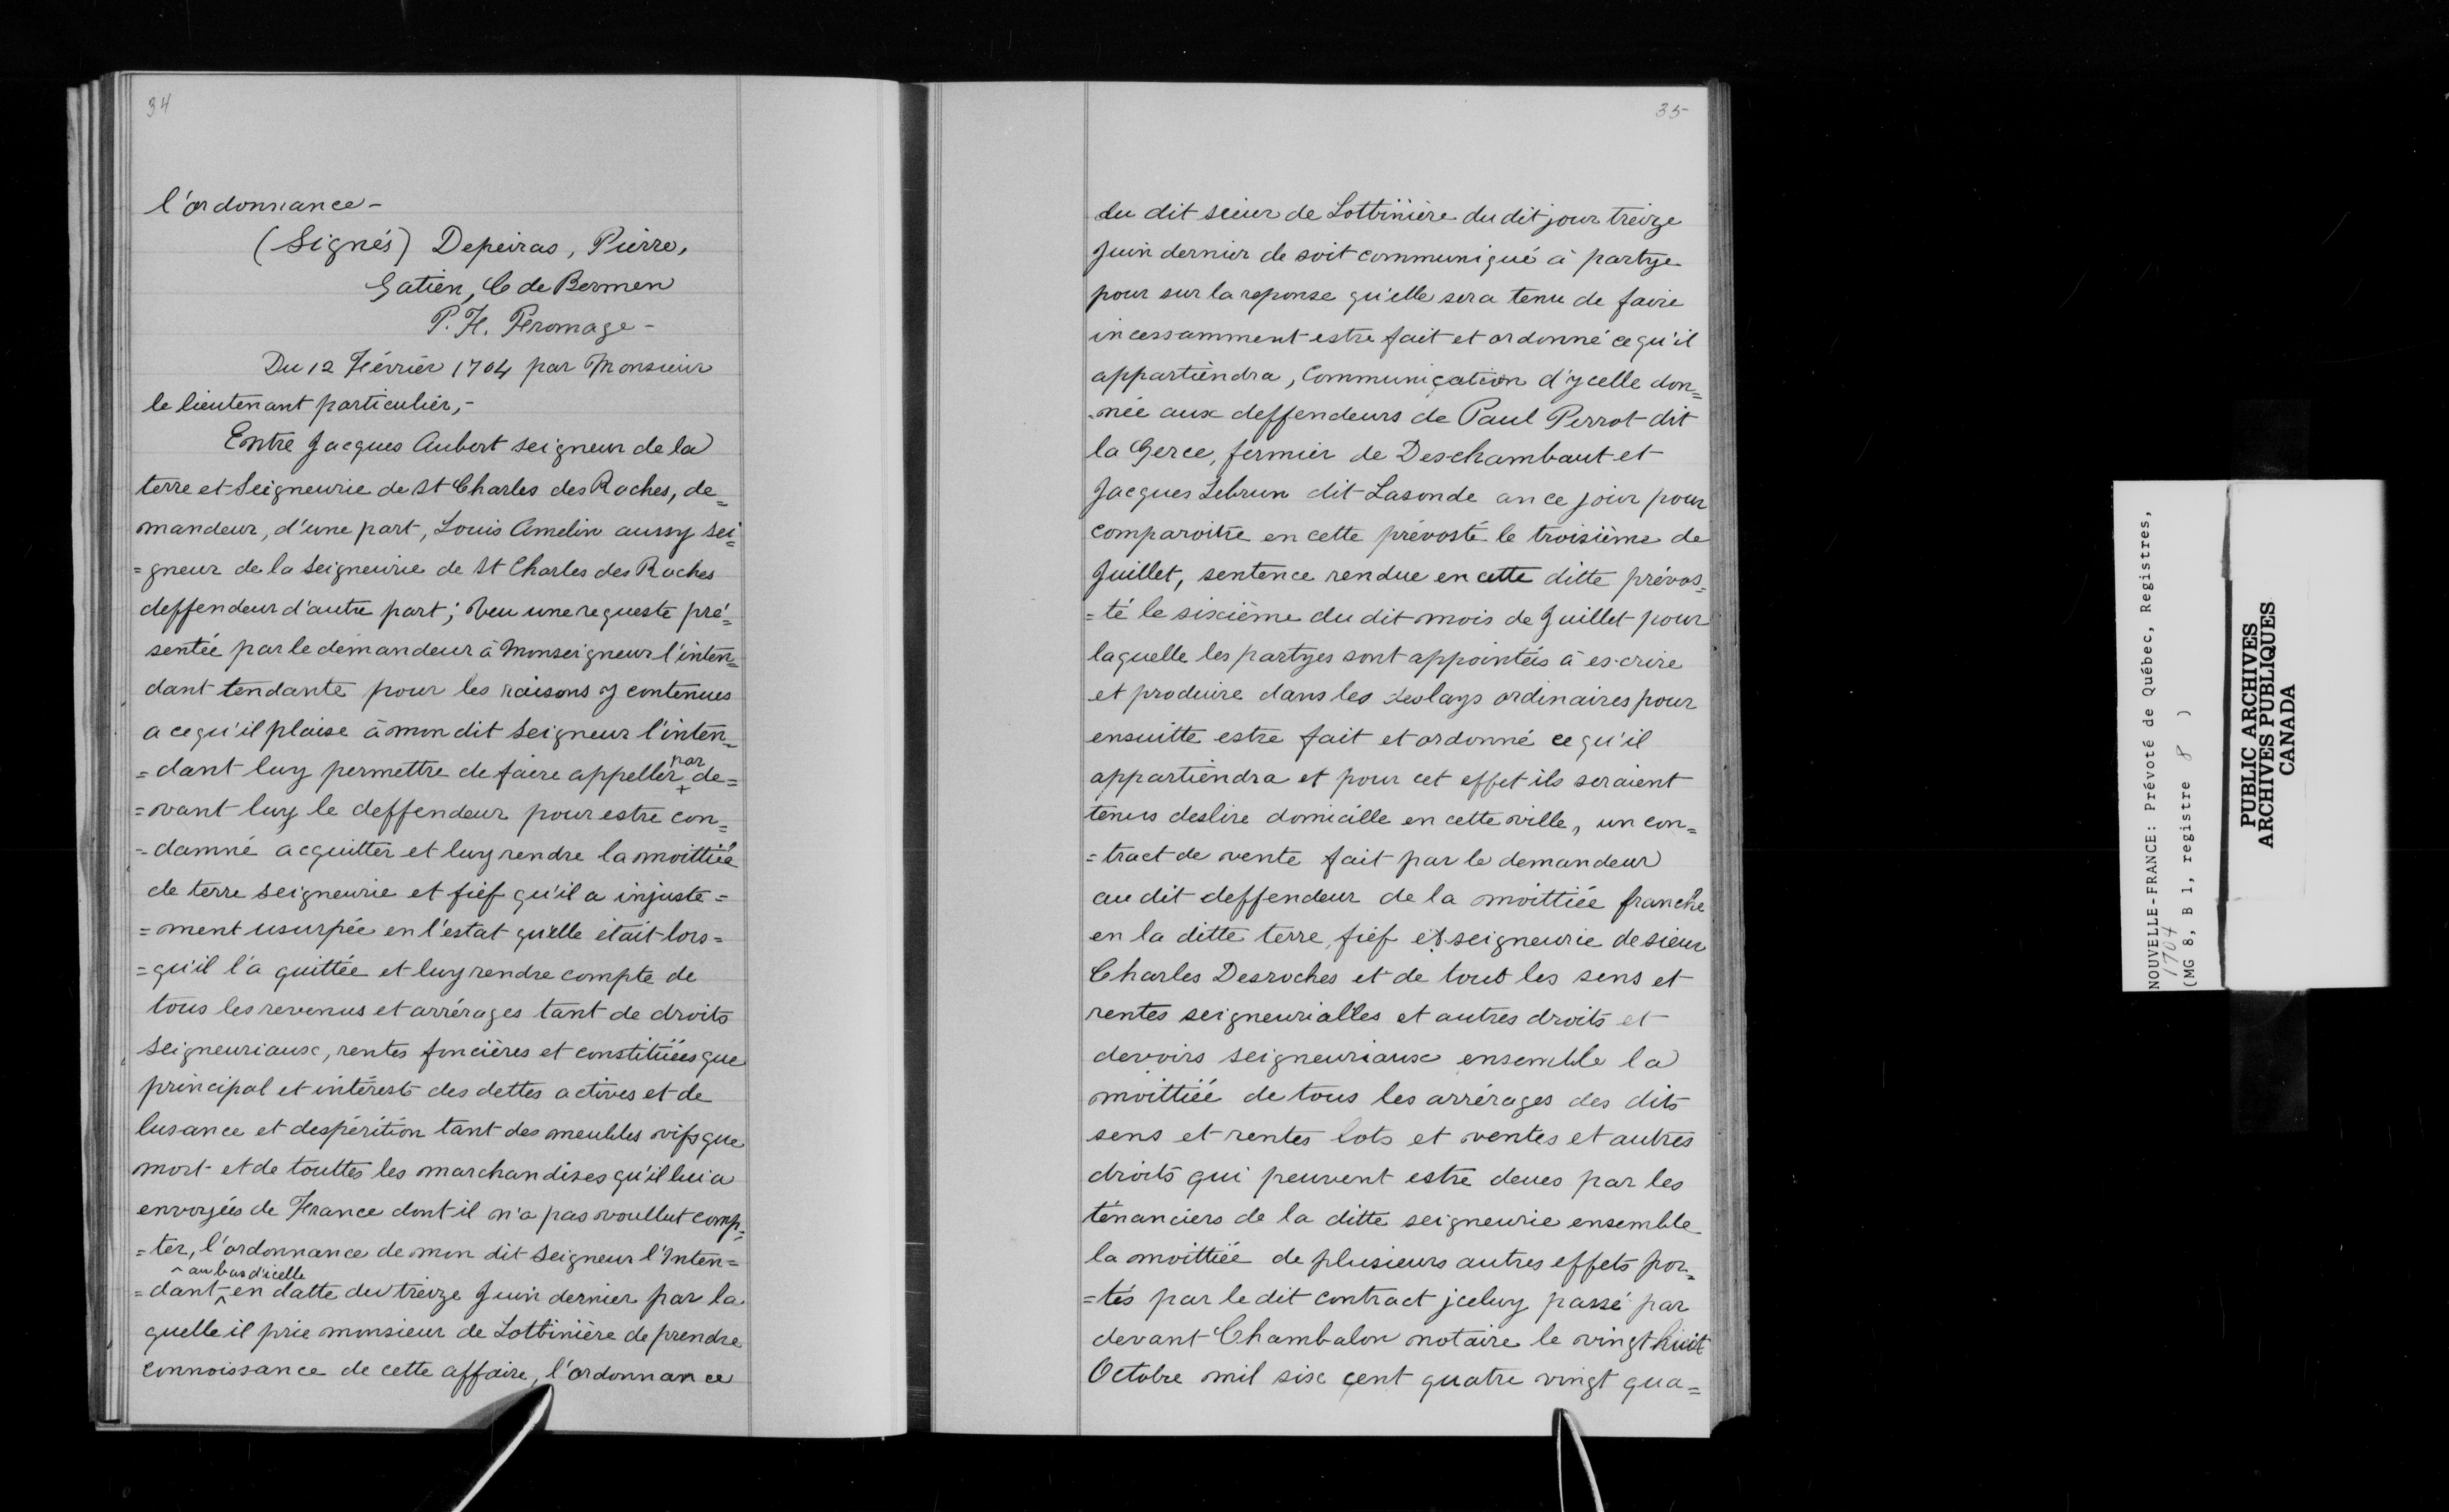 34
l'ordonnance -
(Signés) Depeiras, Pierre,
Gatien, C de Bermen
P. H. Fromage -
Du 12 Février 1704 par Monsieur
le lieutenant particulier, -
Entre Jacques Aubert seigneur de la
terre et Seigneurie de St Charles des Roches, de=
mandeur, d'une part, Louis Amelin aussy sei=
=gneur de la Seigneurie de St Charles des Roches
deffendeur d'autre part; Veu une requeste pré=
sentée par le demandeur à Monseigneur l'inten=
dant tendante pour les raisons y contenues
a ce qu'il plaise à mon dit Seigneur l'inten=
=dant luy permettre de faire appeller par de=
=vant luy le deffendeur pour estre con=
=damné acquitter et luy rendre la moittiée
de terre seigneurie et fief qu'il a injuste=
=ment usurpée en l'estat qu'elle était lors=
=qu'il l'a quittée et luy rendre compte de
tous les revenus et arrérages tant de droits
Seigneuriaux, rentes foncières et constituées que
principal et intérests des dettes actives et de
lusance et despérition tant des meubles vifs que
mort et de touttes les marchandises qu'il lui a
envoyées de France dont il n'a pas voullut comp=
=ter, l'ordonnance de mon dit Seigneur l'Inten=
=dant au bas d'icelle en datte du treize Juin dernier par la
quelle il prie monsieur de Lotbinière de prendre
connoissance de cette affaire, l'ordonnance
35
du dit sieur de Lotbinière du dit jour treize
Juin dernier de soit communiqué à partye
pour sur la reponse qu'elle sera tenu de faire
incessamment estre fait et ordonné ce qu'il
appartiendra, Communication d'ycelle don=
=née aux deffendeurs de Paul Perrot dit
la Gerce, fermier de Deschambaut et
Jacques Lebrun dit Lasonde an ce jour pour
comparoitre en cette prévosté le troisième de
Juillet, sentence rendue en cette ditte prévos=
=té le sixième du dit mois de Juillet pour
laquelle les partyes sont appointés à escrire
et produire dans les deslays ordinaires pour
ensuitte estre fait et ordonné ce qu'il
appartiendra et pour cet effet ils seraient
tenus deslire domicille en cette ville, un con=
=tract de vente fait par le demandeur
au dit deffendeur de la moittiée franche
en la ditte terre, fief et seigneurie de sieur
Charles Desroches et de tout les sens et
rentes seigneurialles et autres droits et
devoirs seigneuriaux ensemble la
moittiée de tous les arrérages des dits
sens et rentes lots et ventes et autres
droits qui peuvent estre deues par les
ténanciers de la ditte seigneurie ensemble
la moittiée de plusieurs autres effets por=
=tés par le dit contract jceluy passé par
devant Chambalon notaire le vingt huit
Octobre mil six cent quatre vingt qua=
NOUVELLE-FRANCE: Prévoté de Québec, Registres,
1704
(MG 8, B 1, registre 8 )
PUBLIC ARCHIVES
ARCHIVES PUBLIQUES
CANADA